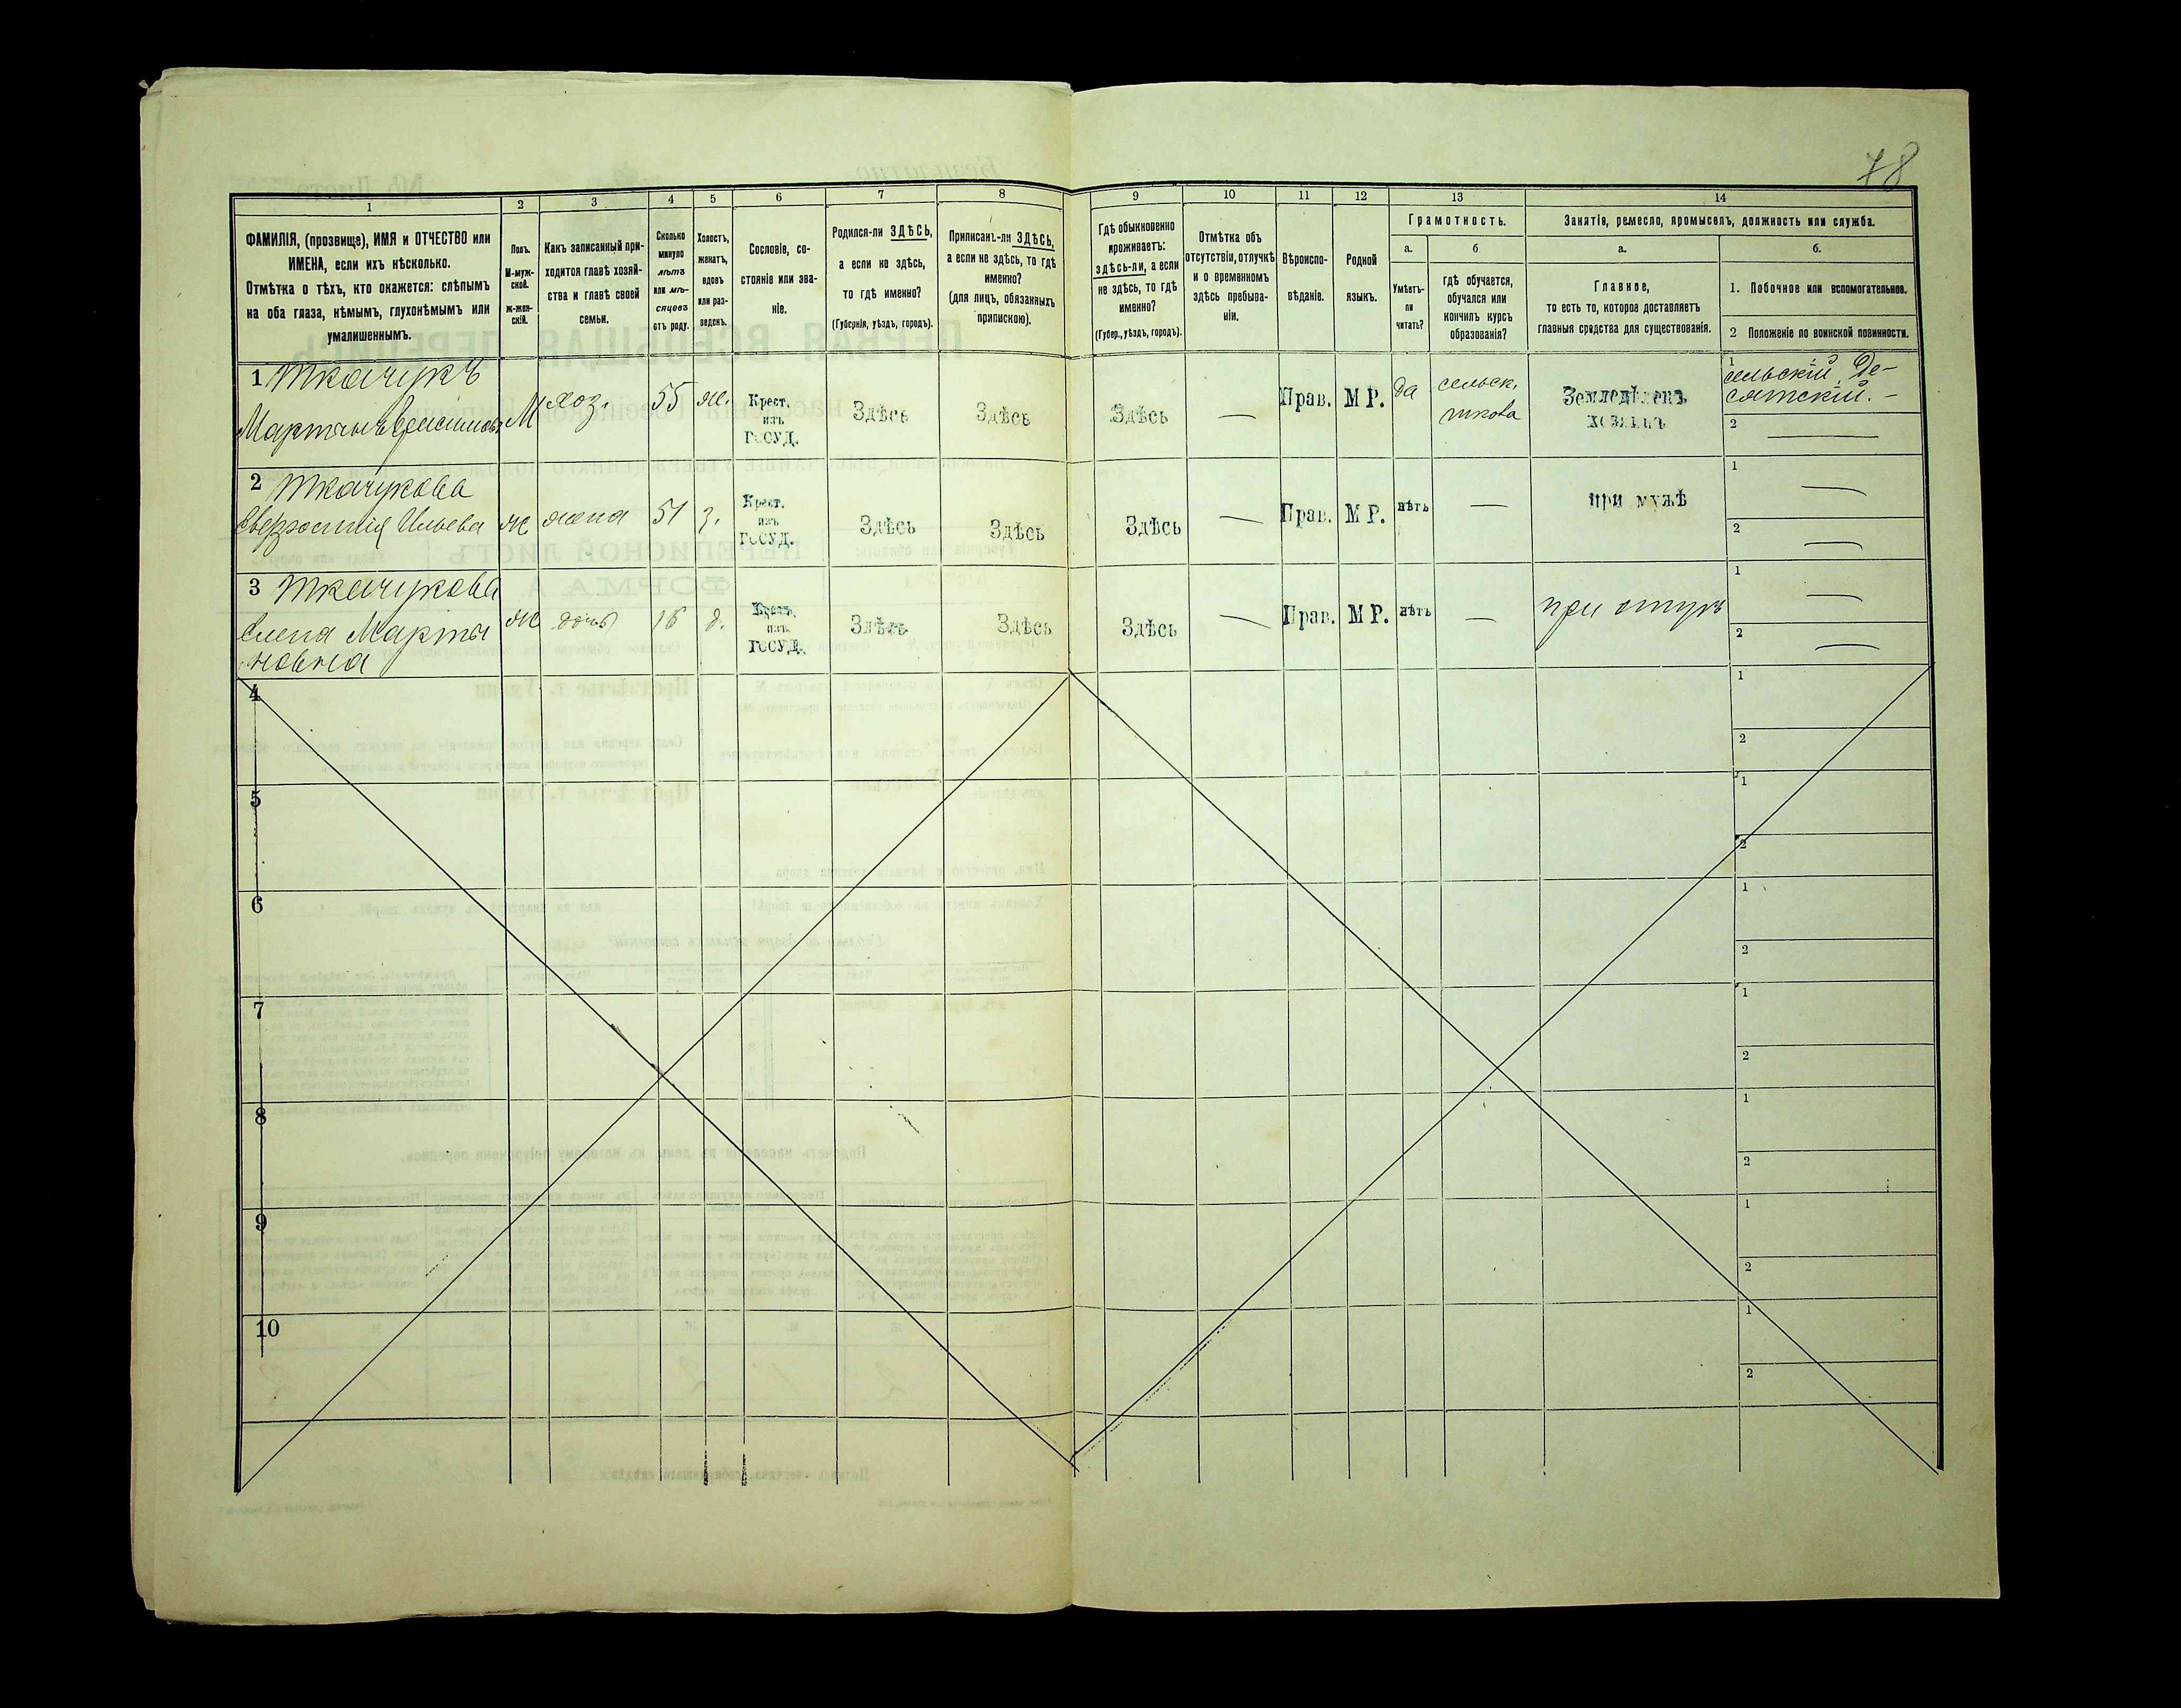 78
1 2 3 4 5 6 7 8 9 10 11 12 13 14
ФАМИЛІЯ, (прозвище), ИМЯ и ОТЧЕСТВО или
ИМЕНА, если ихъ нѣсколько.
Отмѣтка о тѣхъ, кто окажется: слѣпымъ
на оба глаза, нѣмымъ, глухонѣмымъ или
умалишеннымъ.
Полъ.
М-муж-
ской.
ж-жен-
скій.
Какъ записанный при-
ходится главѣ хозяй-
ства и главѣ своей
семьи.
Сколько
минуло
лѣтъ
или мѣ-
сяцевъ
отъ роду.
Холостъ,
женатъ,
вдовъ
или раз-
веденъ.
Сословіе, со-
стояніе или зва-
ніе.
Родился-ли ЗДѢСЬ,
а если не здѣсь,
то гдѣ именно?
(Губернія, уѣздъ, городъ).
Приписанъ-ли ЗДѢСЬ,
а если не здѣсь, то гдѣ
именно?
(для лицъ, обязанныхъ
припискою).
Гдѣ обыкновенно
проживаетъ:
здѣсь-ли, а если
не здѣсь, то гдѣ
именно?
(Губер., уѣздъ, городъ).
Отмѣтка объ
отсутствіи, отлучкѣ
и о временномъ
здѣсь пребыва-
ніи.
Вѣроиспо-
вѣданіе.
Родной
языкъ.
Грамотность.
а.
Умѣетъ-
ли
читать?
б
гдѣ обучается,
обучался или
кончилъ курсъ
образованія?
Занятія, ремесло, промыселъ, должность или служба.
а.
Главное,
то есть то, которое доставляетъ
главныя средства для существованія.
б.
1. Побочное или вспомогательное.
2 Положеніе по воинской повинности.
1 Ткачукъ
Мартынъ
М хоз. 55 ж.
Крест.
изъ
ГОСУД.
Здѣсь Здѣсь Здѣсь — Прав. М Р. да
сельск.
школа
Земледѣлецъ
хозяинъ
1 сельскій Де-
сятскій. —
2 —
2 Ткачукова
Ильева ж жена 51 з.
Крест.
изъ
ГОСУД.
Здѣсь Здѣсь Здѣсь — Прав. М Р. нѣтъ — при мужѣ
1 —
2 —
3 Ткачукова
Елена Марты
новна
ж дочь 16 д.
Крест.
изъ
ГОСУД.
Здѣсь Здѣсь Здѣсь — Прав. М Р. нѣтъ — при отцѣ
1 —
2 —
4 1
2
5 1
2
6 1
2
7 1
2
8 1
2
9 1
2
10 1
2